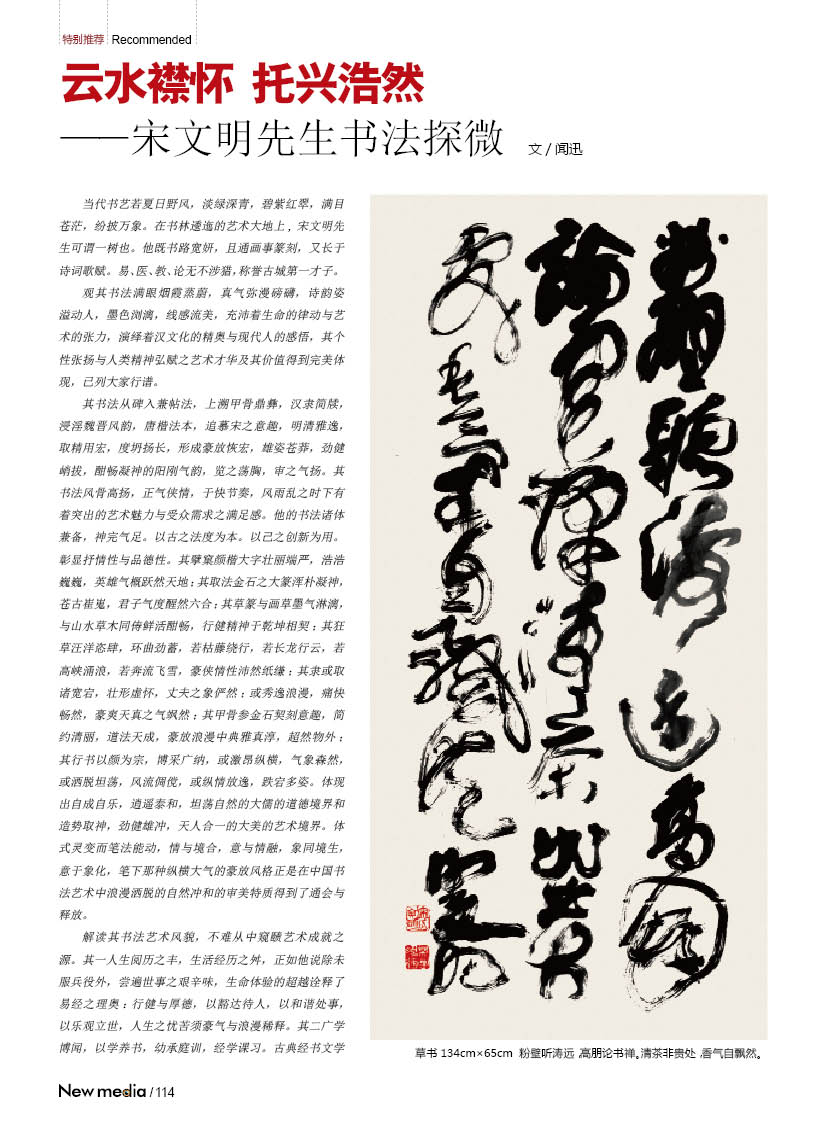 特别推荐 Recommended
云水襟怀 托兴浩然
——宋文明先生书法探微 文/闻迅
当代书艺若夏日野风，淡绿深青，碧紫红翠，满目
苍茫，纷披万象。在书林逶迤的艺术大地上，宋文明先
生可谓一树也。他既书路宽妍，且通画事篆刻，又长于
诗词歌赋。易、医、教、论无不涉猎，称誉古城第一才子。
观其书法满眼烟霞蒸蔚，真气弥漫磅礴，诗韵姿
溢动人，墨色浏漓，线感流美，充沛着生命的律动与艺
术的张力，演绎着汉文化的精奥与现代人的感悟，其个
性张扬与人类精神弘赋之艺术才华及其价值得到完美体
现，己列大家行谱。
其书法从碑入兼帖法，上溯甲骨鼎彝，汉隶简牍，
浸淫魏晋风韵，唐楷法本，追慕宋之意趣，明清雅逸，
取精用宏，度坍扬长，形成豪放恢宏，雄姿苍莽，劲健
峭拔，酣畅凝神的阳刚气韵，览之荡胸，审之气扬。其
书法风骨高扬，正气侠情，于快节奏，风雨乱之时下有
着突出的艺术魅力与受众需求之满足感。他的书法诸体
兼备，神完气足。以古之法度为本。以己之创新为用。
彰显抒情性与品德性。其擘窠颜楷大字壮丽端严，浩浩
巍巍，英雄气概跃然天地；其取法金石之大篆浑朴凝神，
苍古崔嵬，君子气度醒然六合；其草篆与画草墨气淋漓，
与山水草木同俦鲜活酣畅，行健精神于乾坤相契；其狂
草汪洋恣肆，环曲劲蓄，若枯藤绕行，若长龙行云，若
高峡涌浪，若奔流飞雪，豪侠情性沛然纸缣；其隶或取
诸宽宕，壮形虚怀，丈夫之象俨然；或秀逸浪漫，痛快
畅然，豪爽天真之气飒然；其甲骨参金石契刻意趣，简
约清丽，道法天成，豪放浪漫中典雅真淳，超然物外；
其行书以颜为宗，博采广纳，或激昂纵横，气象森然，
或洒脱坦荡，风流倜傥，或纵情放逸，跌宕多姿。体现
出自成自乐，逍遥泰和，坦荡自然的大儒的道德境界和
造势取神，劲健雄冲，天人合一的大美的艺术境界。体
式灵变而笔法能动，情与境合，意与情融，象同境生，
意于象化，笔下那种纵横大气的豪放风格正是在中国书
法艺术中浪漫洒脱的自然冲和的审美特质得到了通会与
释放。
解读其书法艺术风貌，不难从中窥赜艺术成就之
源。其一人生阅历之丰，生活经历之舛，正如他说除未
服兵役外，尝遍世事之艰辛味，生命体验的超越诠释了
易经之理奥：行健与厚德，以豁达待人，以和谐处事，
以乐观立世，人生之忧苦须豪气与浪漫稀释。其二广学
博闻，以学养书，幼承庭训，经学课习。古典经书文学
草书 134cm×65cm 粉壁听涛远，高朋论书禅。清茶非贵处，香气自飘然。
New media / 114